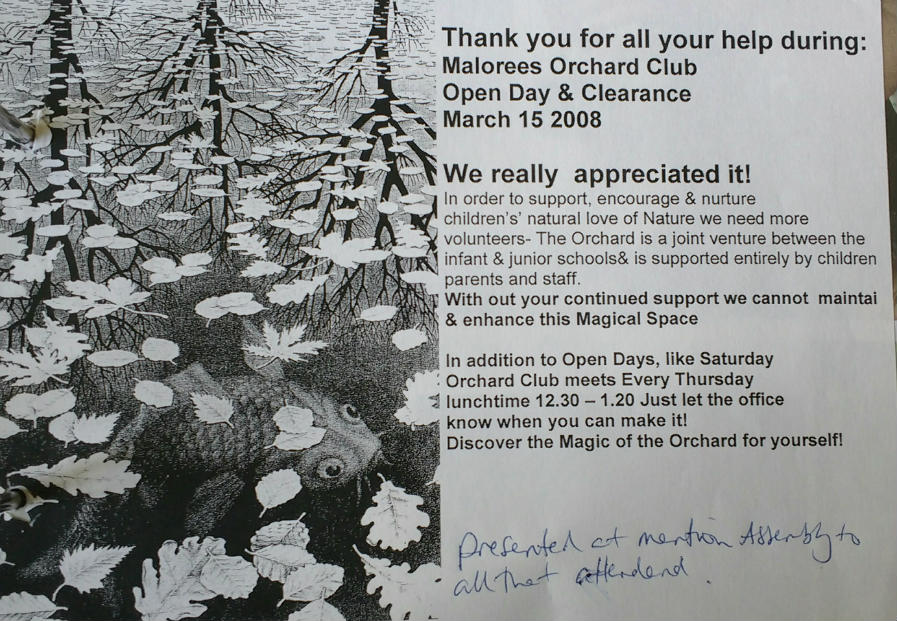 Thank you for all your help during:
Malorees Orchard Club
Open Day & Clearance
March 15 2008
We really  appreciated it!
In order to support, encourage & nurture
children's' natural love of Nature we need more
volunteers- The Orchard is a joint venture between the
infant & junior schools& is supported entirely by children
parents and staff.
With out your continued support we cannot  maintai
& enhance this Magical Space
In addition to Open Days, like Saturday
Orchard Club meets Every Thursday
lunchtime 12.30 – 1.20 Just let the office
know when you can make it!
Discover the Magic of the Orchard for yourself!
Presented at mention Assembly to
all that attendend.